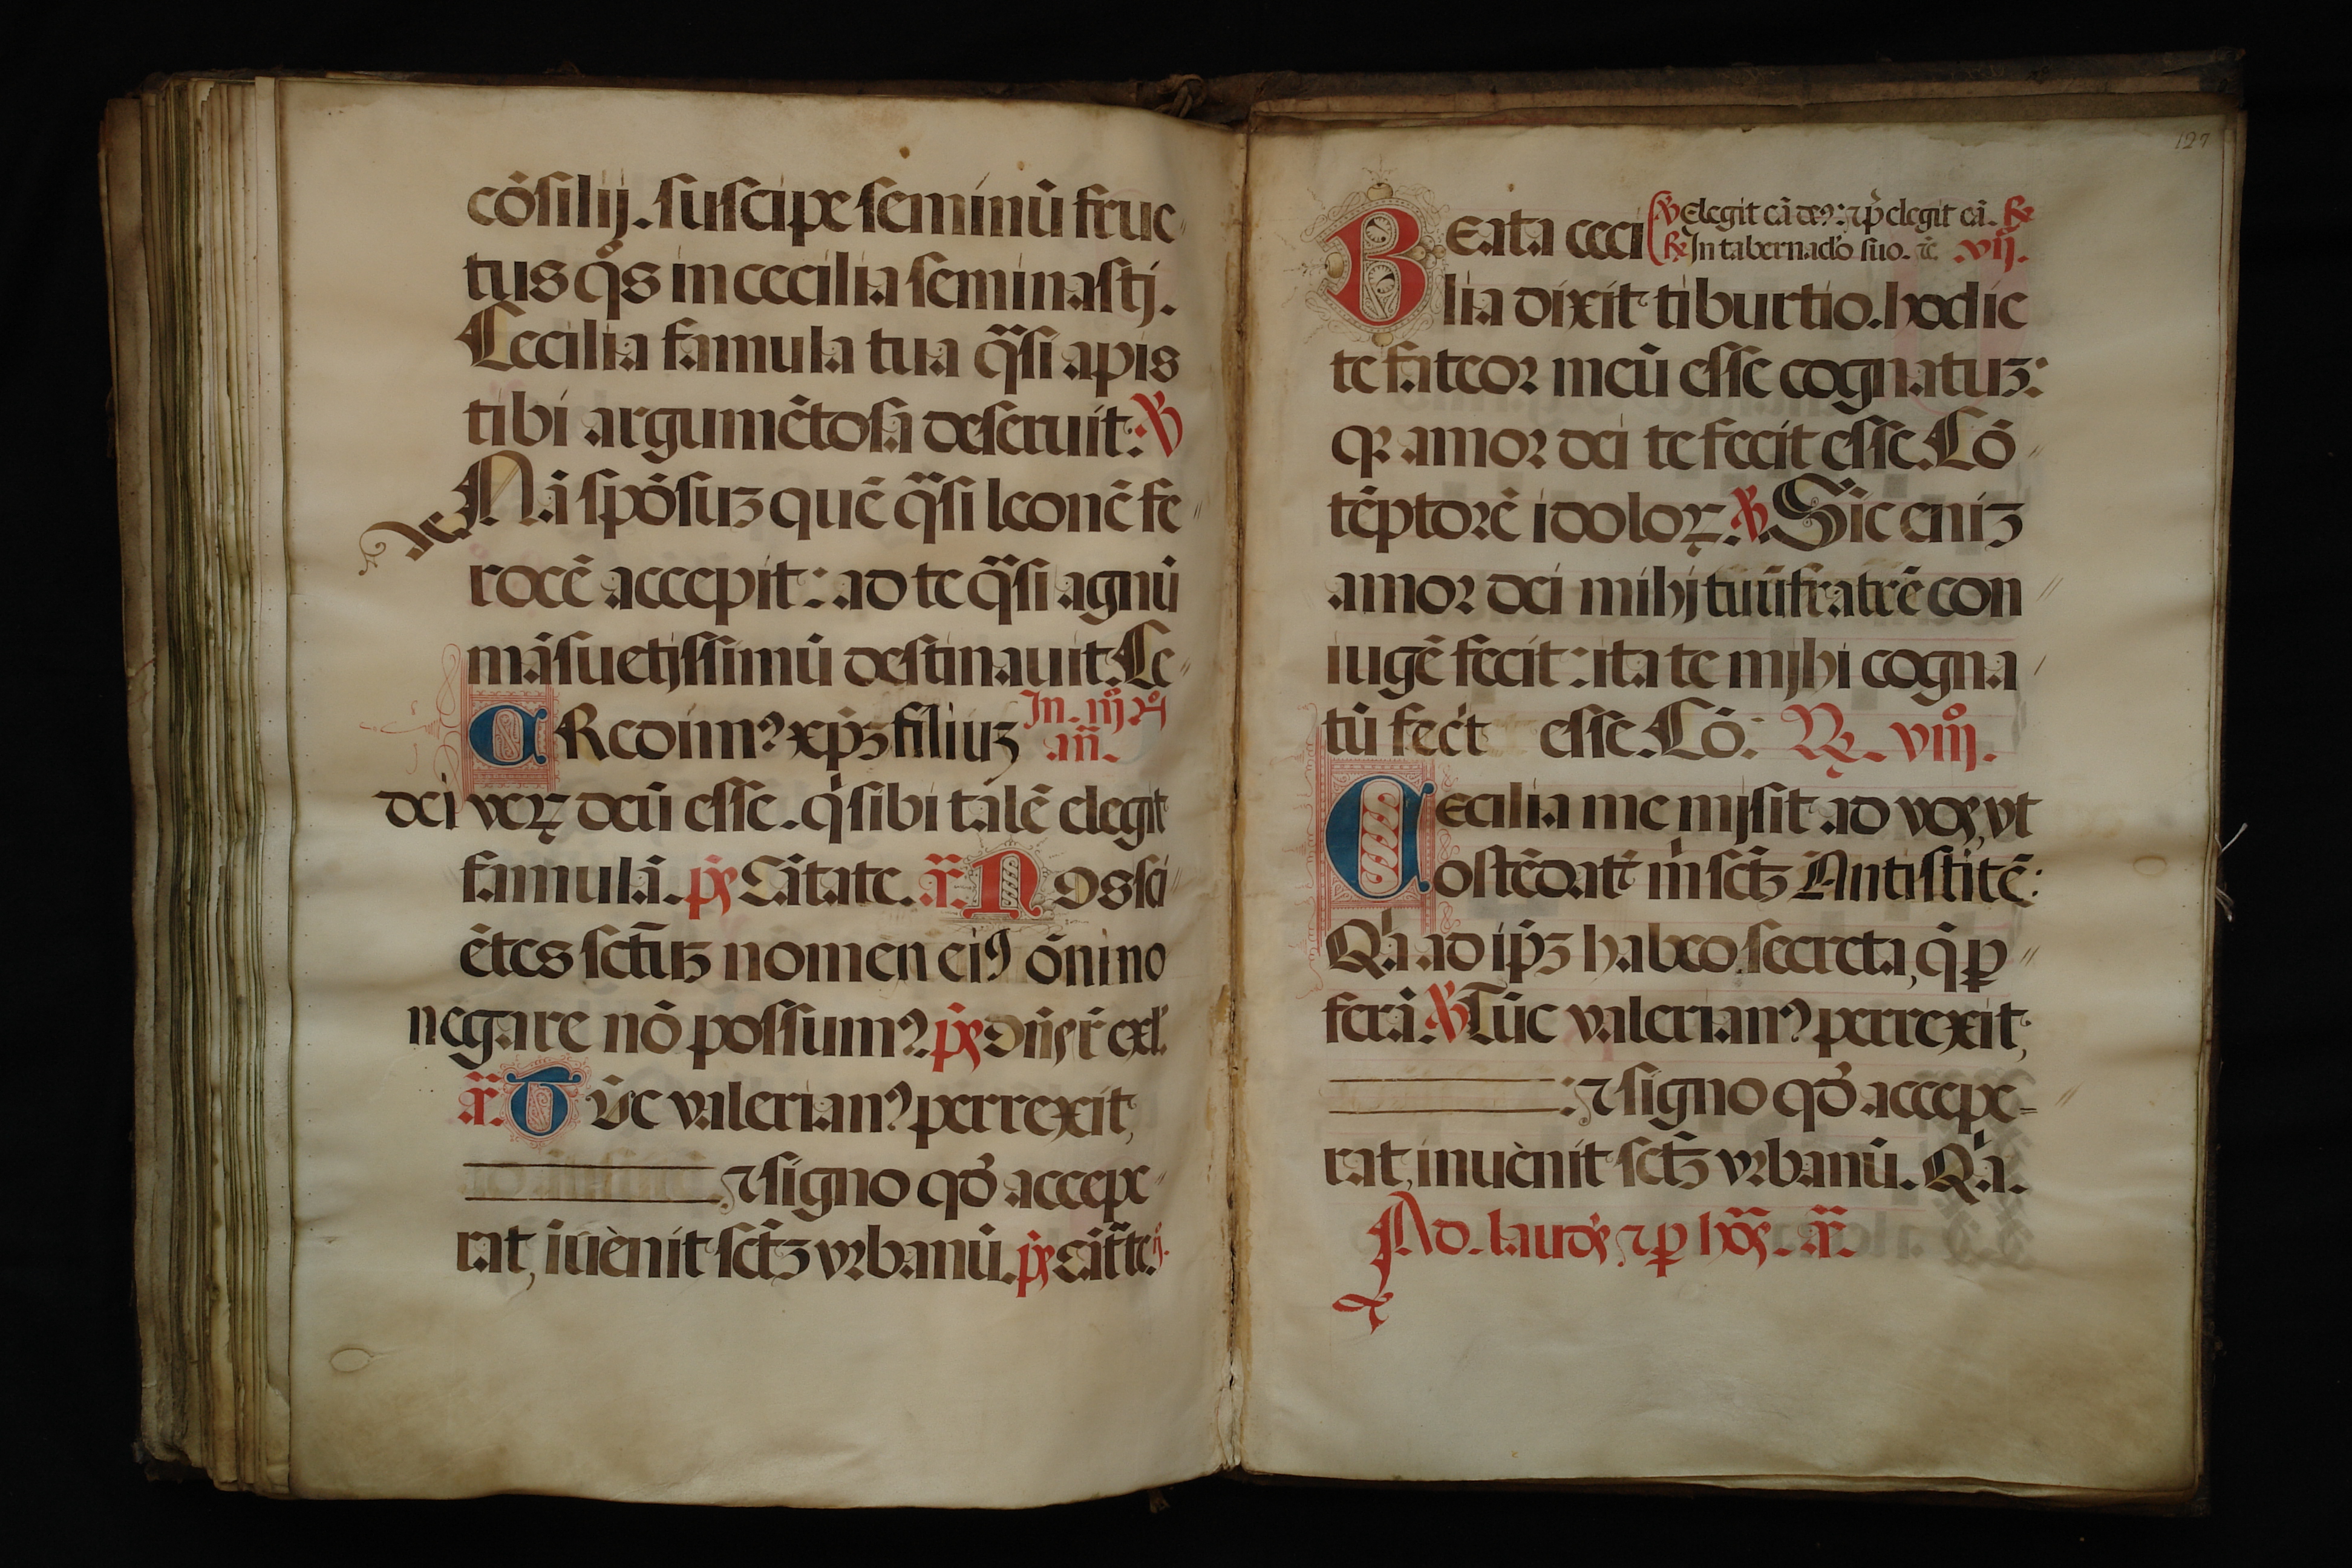 cōsilij. suscipe seminū fruc
tus qͦs in cecilia seminastj.
Cecilia famula tua qͣsi apis
tibi argumētosa deseruit: ℣
Nā spōsuꝫ quē qͣsi leonē fe
rocē accepit: ad te qͣsi agnū
māsuetissimū destinauit. Ce
CRedim⁹ xp̄ꝫ filiuꝫ In. iijͦ ꝛͦ
an̄.
dei veꝝ deū esse. qͥ sibi talē elegit
famulā. p̄s Cātate. a᷒. Nos sci
ētes sct̄uꝫ nomen ei⁹ ōnino
negare nō possum⁹. p̄s Dn̄s r̄ ex̄l.
a᷒. Tūc valerian⁹ perrexit,
⁊ signo qđ accepe
rat, iuēnit sct̄ꝫ vrbanū. p̄s Cāt̄te.
127
BEata ceci ℣ Elegit eā de⁹: ⁊ p̄elegit eā. ℟
℟ In tabernac̄lo suo. ⁊c̄ .vij.
lia dixit tiburtio. hodie
te fateor meū esse cognatuꝫ:
qꝛ amor dei te fecit esse. Cō
tēptorē idoloꝝ. ℣. Sic eniꝫ
amor dei mihj tuū fratrē con
iugē fecit: ita te mjhi cogna
tū fecit esse. Cō: ℟. viijͦ.
Cecilia me mjsit ad vos, vt
ostēdatͥ mͥ sct̄ꝫ Antistitē:
Qͥa ad ip̄ꝫ habeo secreta, q̄ ꝑ
ferā. ℣ Tūc valerian⁹ perrexit,
: ⁊ signo qđ accepe-
rat, inuènit sct̄ꝫ vrbanū. Qͥa.
Ad. laudes ⁊ ꝑ hōs. a᷒.